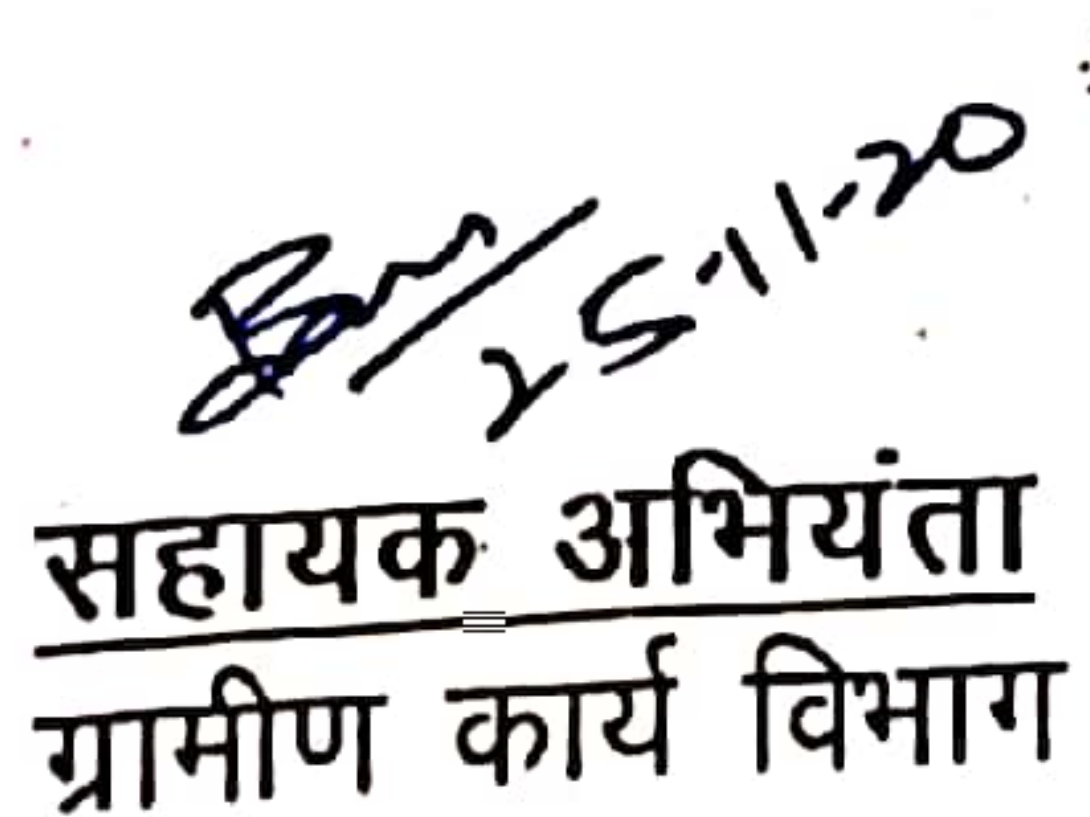 25-11-20
सहायक अभियंता
ग्रामीण कार्य विभाग